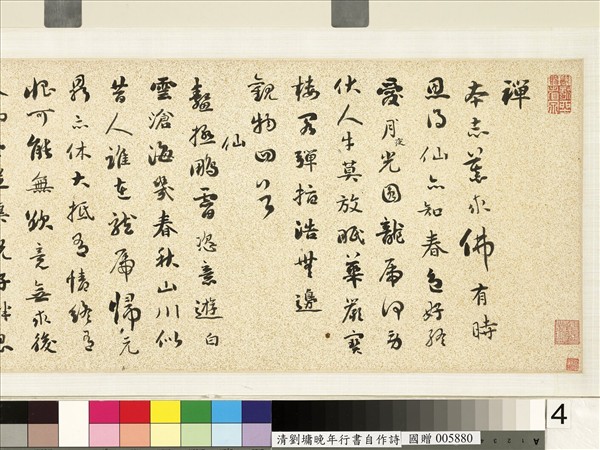 禪
本志求佛有時
仙亦知春色好終
愛月夜光圓龍虎何勞
伏人牛莫放眠華嚴寶
樓彈指浩無邊
觀物四首
仙
鼇極鵬霄恣意遊白
雲滄海幾春秋山川似
昔人誰在龍虎歸元
鼎亦休大抵有情終有
恨可能無欲竟無求後
4
清劉墉晚年行書自作詩 國贈 005880